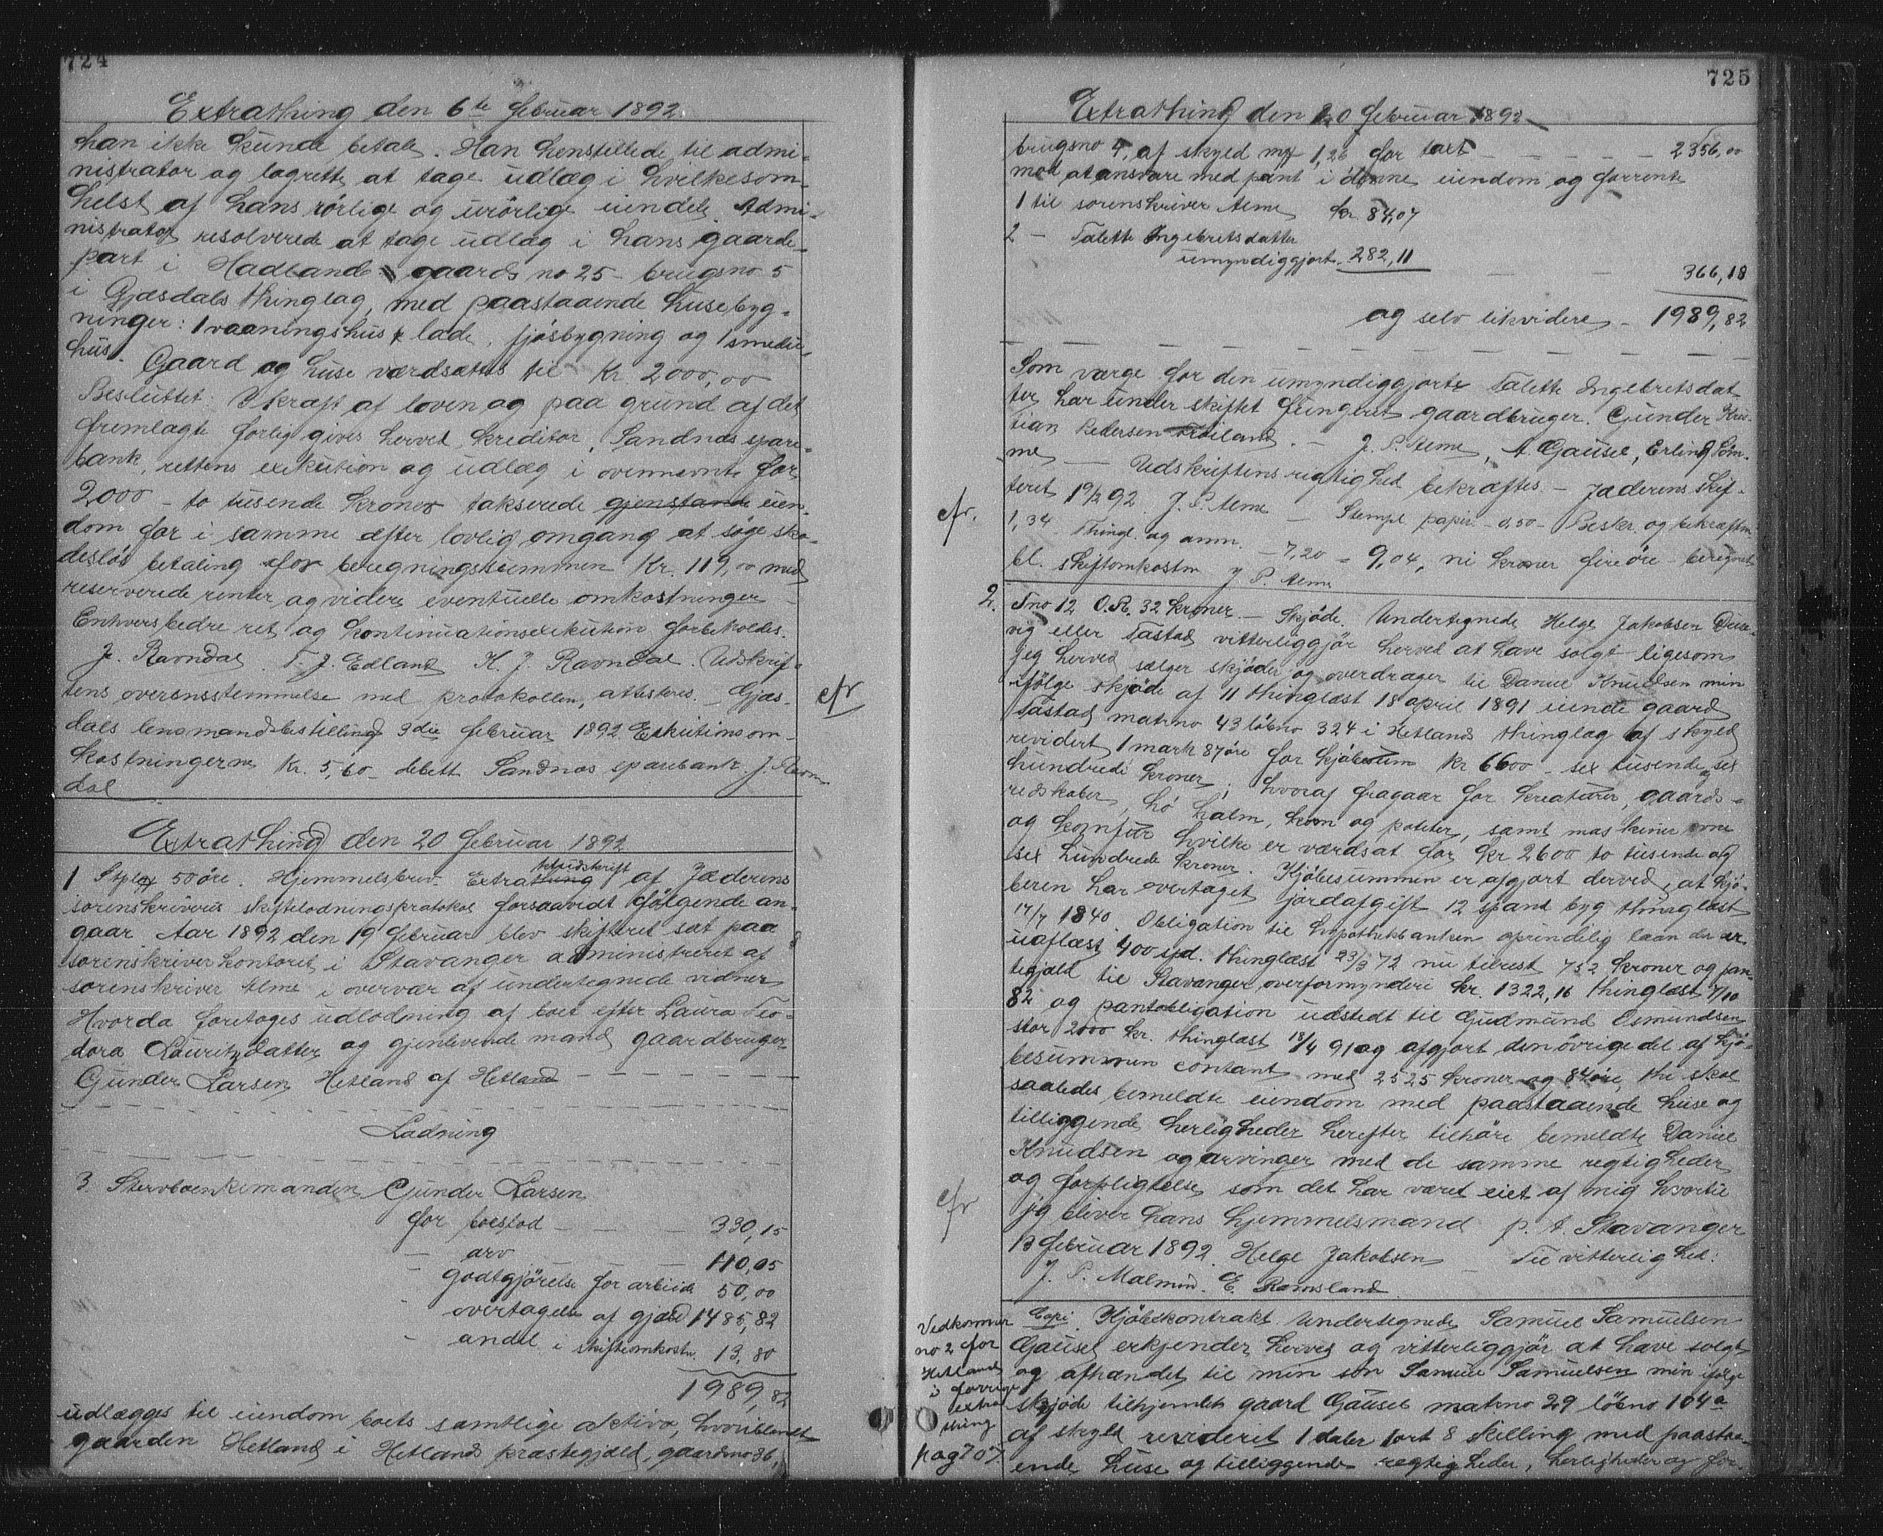 724
Extrathing den 6te februar 1892
han ikke kunde betale. Han henstillede til admi-
nistrator og lagrette at tage udlæg i hvilkesom-
helst af hans rörlige og urörlige eiendele. Admi-
nistrator resolverede at tage udlæg i hans gaarde-
part i Hadland gaards no 25 - brugsno 5
i Gjæsdals thinglag, med paastaaende husebyg-
ninger: 1 vaaningshus, lade, fjösbygning og 1 smedie-
hus. Gaard og huse værdsattes til Kr. 2000,00
Besluttet: I kraft af loven og paa grund af det
fremlagte forlig gives herved kreditor, Sandnæs spare-
bank, rettens exikution og udlæg i ovennævnte for
2000 - to tusende kroner takserede gjenstande eien-
dom for i samme efter lovlig omgang at söge ska-
deslös betaling for beregningssummen Kr. 119,00 med
reserverede renter og videre eventuelle omkostninger -
Enhvers bedre ret og kontinuationsexikution forbeholdes.
J. Ravndal T. J. Edland H. J. Ravndal. Udskrif-
tens overensstemmelse med protokollen, attesteres. - Gjæs-
cfr
dals lensmandsbestilling 3die februar 1892 Exikutionsom-
kostningerne Kr. 5,60 debett Sandnæs sparebank. J. Ravn
dal
Extrathing den 20 februar 1892
1 Stplp 50 öre. Hjemmelsbrev. Extrathing udskrift af Jæderens
sorenskriveris skiftelodningsprotokol forsaavidt fölgende an-
gaar. Aar 1892 den 19 februar blev skifteret sat paa
sorenskriverkontoret i Stavanger administreret af
sorenskriver Aeme i overvær af undertegnede vidner
Hvorda foretoges udlodning af boet efter Laura Teo-
dora Lauritzdatter og gjenlevende mand gaardbruger
Gunder Larsen Hetland af Hetland
Lodning
3 Stervboenkemanden Gunder Larsen
for boeslod 330,15
- arv 110,05
godtgjörelse for arbeide 50,00
- overtagelse af gjæld 1485,82
- andel i skifteomkostn. 13,80
1989,82
udlægges til eiendom boets samtlige aktiva, hvoriblandt
gaarden Hetland i Hetlands præstegjæld, gaardsno 36,
725
Extrathing den 20 februar 1892
brugsno 4, af skyld mk 1,26 for taxt 2356,00
mod at ansvare med pant i denne eiendom og forrente
1 til sorenskriver Aeme Kr 84,07
2 - Talette Ingebretsdatter
umyndiggjort 282,11
366,18
og selv likvidere - 1989,82
Som værge for den umyndiggjorte Talette Ingebretsdat
ter har under skiftet fungeret gaardbruger Gunder Kris-
tian Pedersen . - J. P. Aeme, A Gausel, Erling Röm.
me - Udskriftens rigtighed bekræftes - Jæderens skif-
teret 19/2 92 J. P. Aeme - Stempl. papir - 0,50 - Beskr. og bekræftn
cfr.
1,34 Thingl. og anm. - 7,20 = 9,04, ni kroner fire öre - beregnet
bl. skifteomkostn J P. Aeme
2. Tno 12 O.St. 32 Kroner - Skjöde. Undertegnede Helge Jakobsen Duse-
vig eller Tastad vitterliggjör herved at have solgt ligesom
jeg herved sælger skjöder og overdrager til Daniel Knudsen min
ifölge skjöde af 11 thinglæst 18 april 1891 eiende gaard
Tastad matrno 43 löbno 324 i Hetlands thinglag af skyld
revidert 1 mark 87 öre for kjöbesum Kr 6600 - sex tusende sex
hundrede kroner, hvoraf fragaar for kreaturer, gaards-
redskaber, hö halm, korn og poteter, samt maskiner ovne
og komfur hvilke er værdsat for Kr 2600 to tusende og
sex hundrede kroner. Kjöbesummen er afgjort derved, at kjö-
beren har overtaget jordafgift 12 spand byg thinglæst
17/7 1840. Obligation til hypothekbanken oprindelig laan der er
uaflæst 400 spd. thinglæst 23/3 72 nu tilrest 752 kroner og pan-
tegjæld til Stavanger overformynderi kr. 1322,16 thinglæst 7/10
82 og pantobligation udstedt til Gudmund Osmundsen
stor 2000 kr. thinglæst 18/4 91 og afgjort den övrige del af kjö-
besummen contant med 2525 kroner og 84 öre, thi skal
saaledes bemeldte eiendom med paastaaende huse og
tilliggende herligheder herefter tilhöre bemeldte Daniel
Knudsen og arvinger med de samme rigtigheder
og forpligtelse som det har været eiet af mig hvortil
cfr
jeg bliver hans hjemmelsmand p. t. Stavanger
13 februar 1892. Helge Jakobsen Til vitterlighed:
J. P. Malmin. E. Ramsland
Vedkommer
no 2 for
Hetland
i forrige
extra
thing
pag 707
Copi. Kjöbekontrakt Undertegnede Samuel Samuelsen
Gausel erkjender herved og vitterliggjör at have solgt
og afhændet til min sön Samuel Samuelsen min ifölge
skjöde tilhjemlet gaard Gausel matrno 29 löbno 104a
af skyld revideret 1 daler 1 ort 8 skilling med paastaa-
ende huse og tilliggende rigtigheder, herligheder og for-